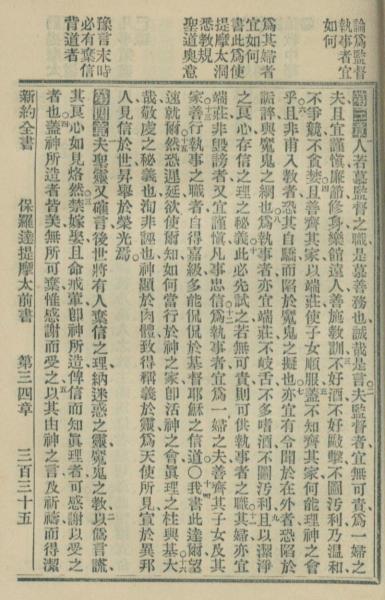 論爲監督
執事者宜
如何
爲其婦者
宜如何
書此爲使
提摩太洞
悉教規
聖道奧意
豫言末時
必有棄信
背道者
第三章人若慕監督之職是慕善務也誠哉是言夫監督者宜無可責爲一婦之
夫且宜謹慎廉節修身樂館遠人善施教訓不好酒不好毆擊不圖汚利乃溫和
不爭競不貪婪且善齊其家以端莊使子女順服蓋不知齊其家何能理神之會
乎且非甫入教者恐其自驕而陷於魔鬼之擬也亦宜有令聞於在外者恐陷於
詬誶與魔鬼之網也爲執事者亦宜端莊不岐舌不多嗜酒不圖汚利且以潔淨
之良心存信之理之秘義此必先試之若無可責則可供執事者之職其婦亦宜
端莊非毀謗者又宜謹愼凡事忠信爲執事者宜爲一婦之夫善齊其子女及其
家善行執事之職者自得嘉級多能侃侃於基督耶穌之信道〇我書此達爾望
速就爾然恐遲延欲使爾知如何當行於神之家卽活神之會眞理之柱與基大
哉敬虔之秘義也洵非誣也神顯於肉體致得稱義於靈爲天使所見宣於異邦
人見信於世昇舉於榮光焉
第四章夫聖靈又確言後世將有人棄信之理納迷惑之靈魔鬼之教以僞言謊
其良心如見烙然禁嫁娶且命戒葷卽神所造俾信而知眞理者可感謝以受之
者也蓋神所造者皆美無所可棄惟感謝而受之以其由神之言及祈禱而得潔
新約全書 保羅達提摩太前書 第三四章 三百三十五